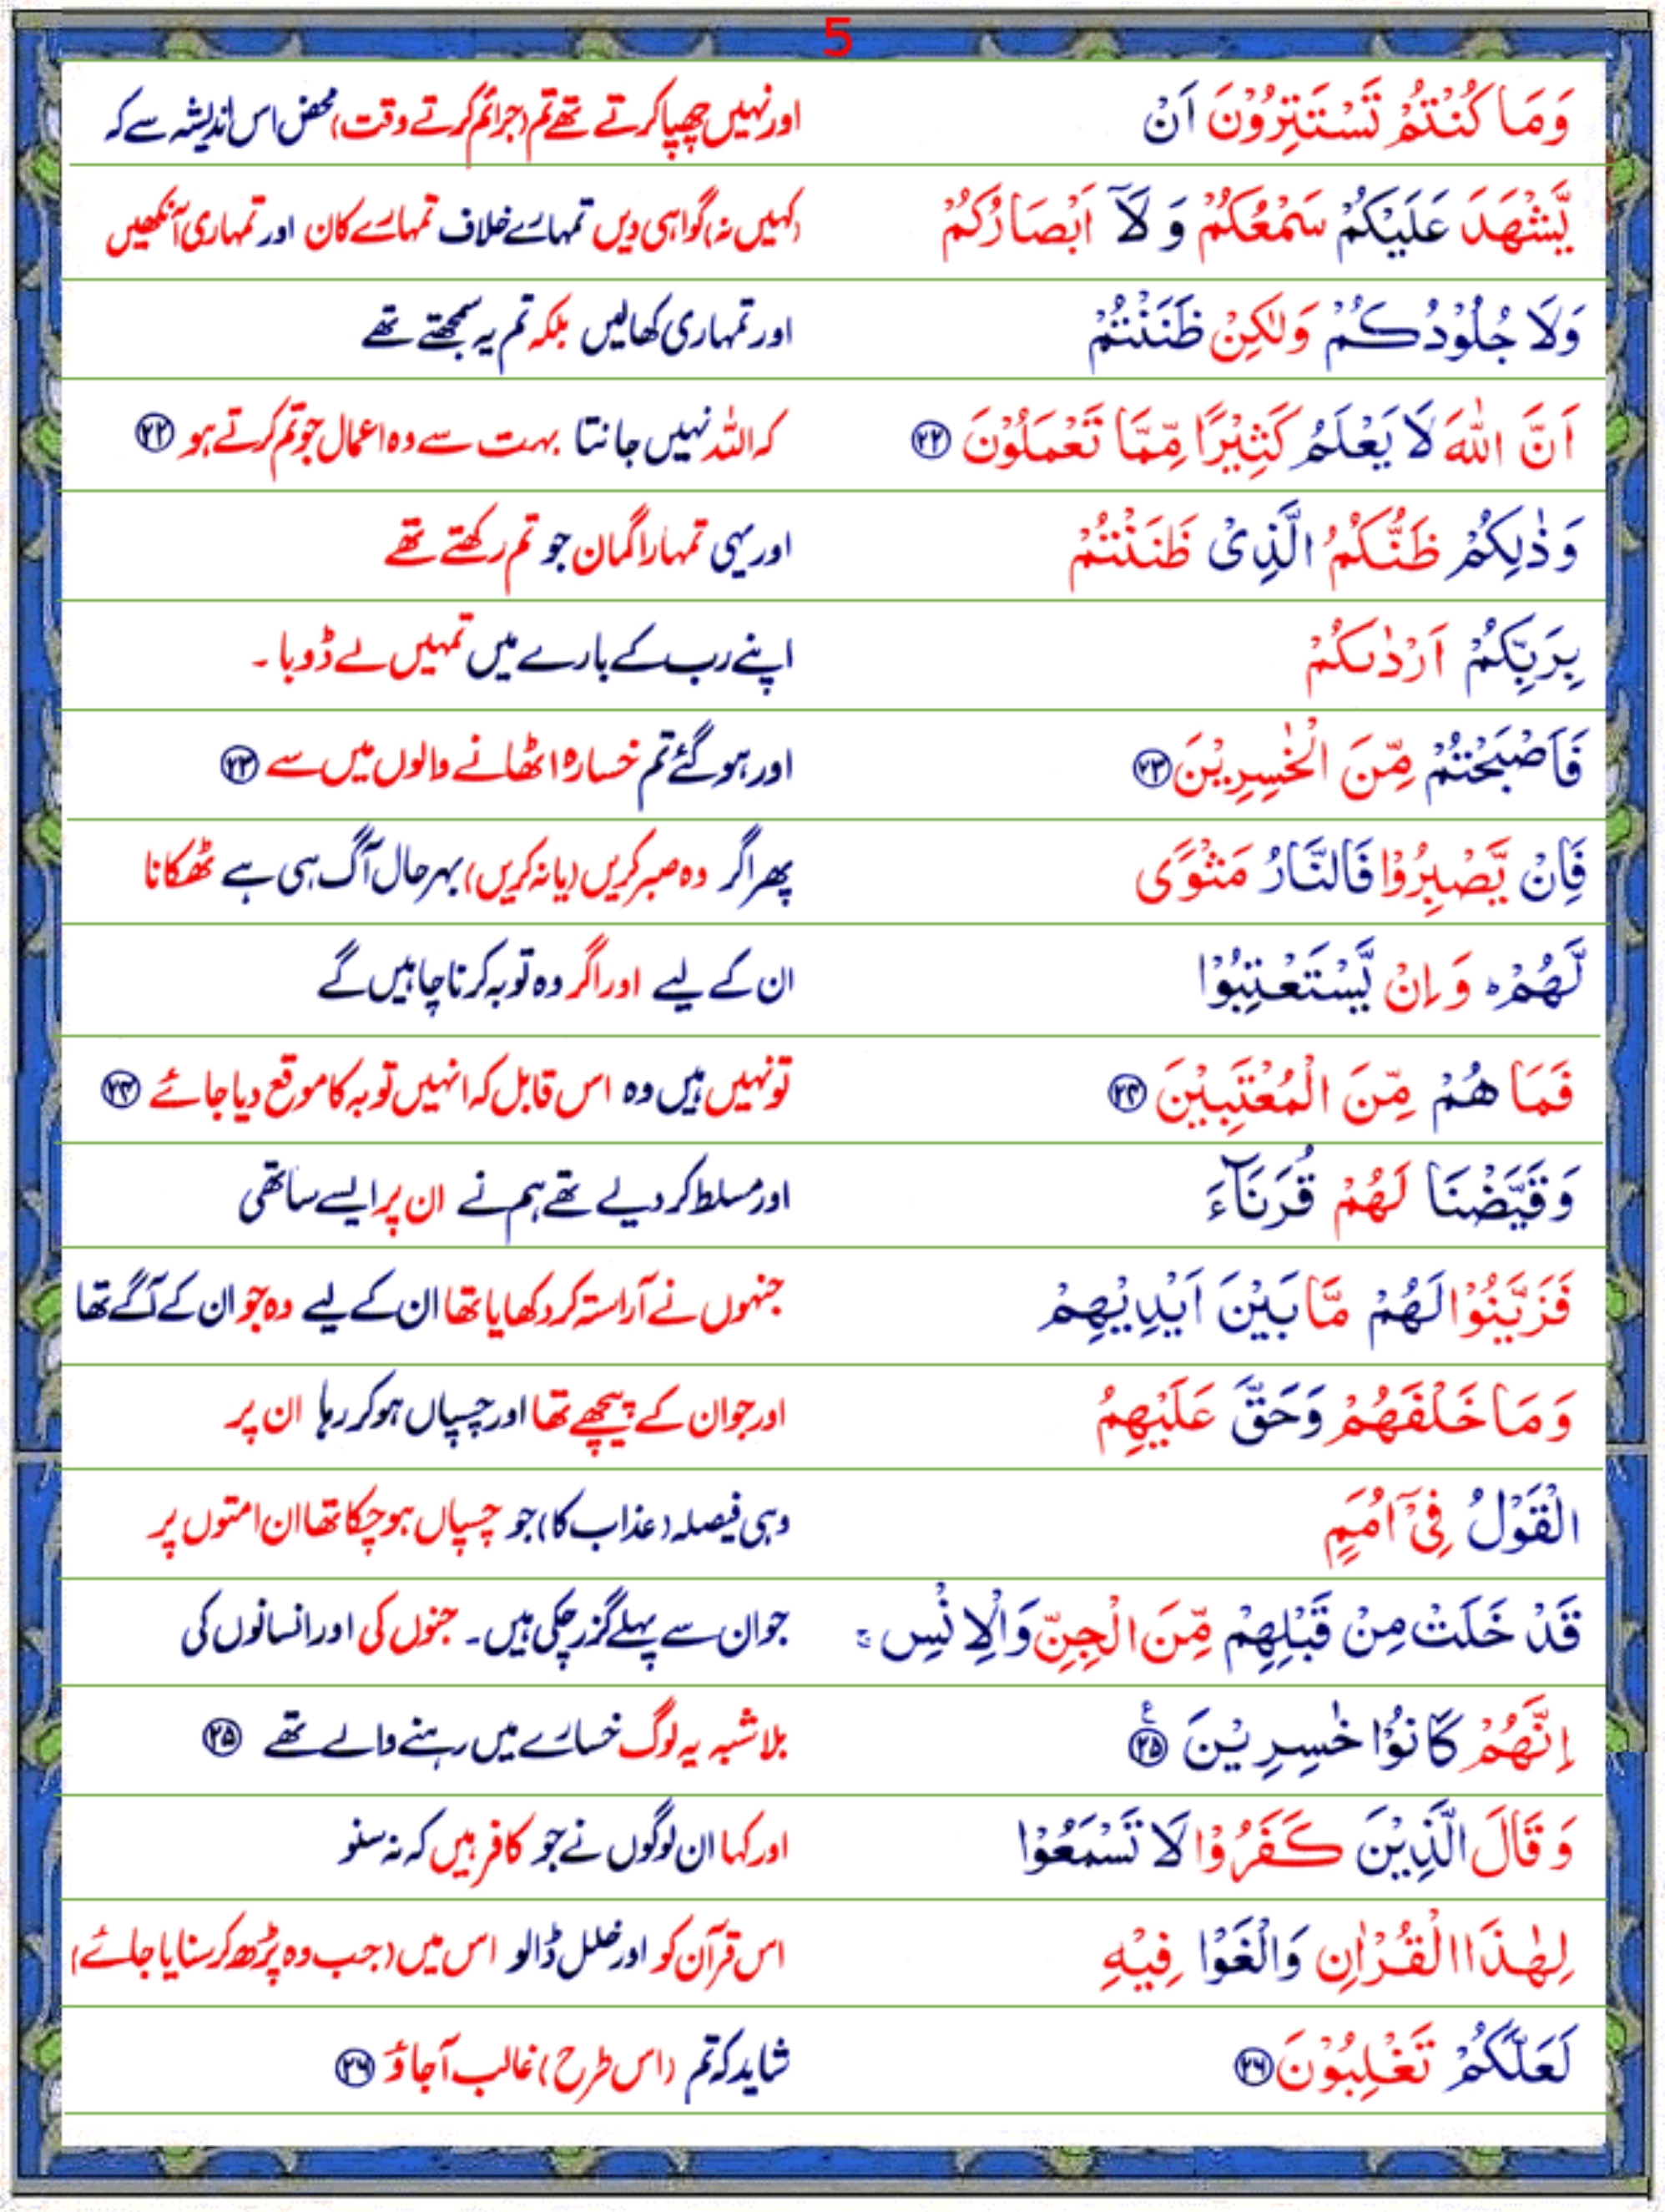 5
وَمَا كُنْتُمْ تَسْتَتِرُوْنَ اَنْ اور نہیں چھپا کرتے تھے تم (جرائم کرتے وقت) محض اس اندیشہ سے کہ
يَّشْهَدَ عَلَيْكُمْ سَمْعُكُمْ وَ لَآ اَبْصَارُكُمْ (کہیں نہ) گواہی دیں تمہارے خلاف تمہارے کان اور تمہاری آنکھیں
وَلَا جُلُوْدُكُمْ وَلٰكِنْ ظَنَنْتُمْ اور تمہاری کھالیں بلکہ تم یہ سمجھتے تھے
اَنَّ اللّٰهَ لَا يَعْلَمُ كَثِيْرًا مِّمَّا تَعْمَلُوْنَ ۲۲ کہ اللہ نہیں جانتا بہت سے وہ اعمال جو تم کرتے ہو ۲۲
وَذٰلِكُمْ ظَنُّكُمُ الَّذِىْ ظَنَنْتُمْ اور یہی تمہارا گمان جو تم رکھتے تھے
بِرَبِّكُمْ اَرْدٰىكُمْ اپنے رب کے بارے میں تمہیں لے ڈوبا ۔
فَاَصْبَحْتُمْ مِّنَ الْخٰسِرِيْنَ ۲۳ اور ہو گئے تم خسارہ اٹھانے والوں میں سے ۲۳
فَاِنْ يَّصْبِرُوْا فَالنَّارُ مَثْوًى پھر اگر وہ صبر کریں (یا نہ کریں) بہرحال آگ ہی ہے ٹھکانا
لَّهُمْ ؕ وَ اِنْ يَّسْتَعْتِبُوْا ان کے لیے اور اگر وہ توبہ کرنا چاہیں گے
فَمَا هُمْ مِّنَ الْمُعْتَبِيْنَ ۲۴ تو نہیں ہیں وہ اس قابل کہ انہیں توبہ کا موقع دیا جائے ۲۴
وَقَيَّضْنَا لَهُمْ قُرَنَآءَ اور مسلط کر دیے تھے ہم نے ان پر ایسے ساتھی
فَزَيَّنُوْا لَهُمْ مَّا بَيْنَ اَيْدِيْهِمْ جنہوں نے آراستہ کر دکھایا تھا ان کے لیے وہ جو ان کے آگے تھا
وَمَا خَلْفَهُمْ وَحَقَّ عَلَيْهِمُ اور جو ان کے پیچھے تھا اور چسپاں ہو کر رہا ان پر
الْقَوْلُ فِىْٓ اُمَمٍ وہی فیصلہ (عذاب کا) جو چسپاں ہو چکا تھا ان امتوں پر
قَدْ خَلَتْ مِنْ قَبْلِهِمْ مِّنَ الْجِنِّ وَالْاِنْسِ ۚ جو ان سے پہلے گزر چکی ہیں۔ جنوں کی اور انسانوں کی
اِنَّهُمْ كَانُوْا خٰسِرِيْنَ ۲۵ ع بلا شبہ یہ لوگ خسارے میں رہنے والے تھے ۲۵
وَ قَالَ الَّذِيْنَ كَفَرُوْا لَا تَسْمَعُوْا اور کہا ان لوگوں نے جو کافر ہیں کہ نہ سنو
لِهٰذَا الْقُرْاٰنِ وَالْغَوْا فِيْهِ اس قرآن کو اور خلل ڈالو اس میں (جب وہ پڑھ کر سنایا جائے)
لَعَلَّكُمْ تَغْلِبُوْنَ ۲۶ شاید کہ تم (اس طرح) غالب آجاؤ ۲۶